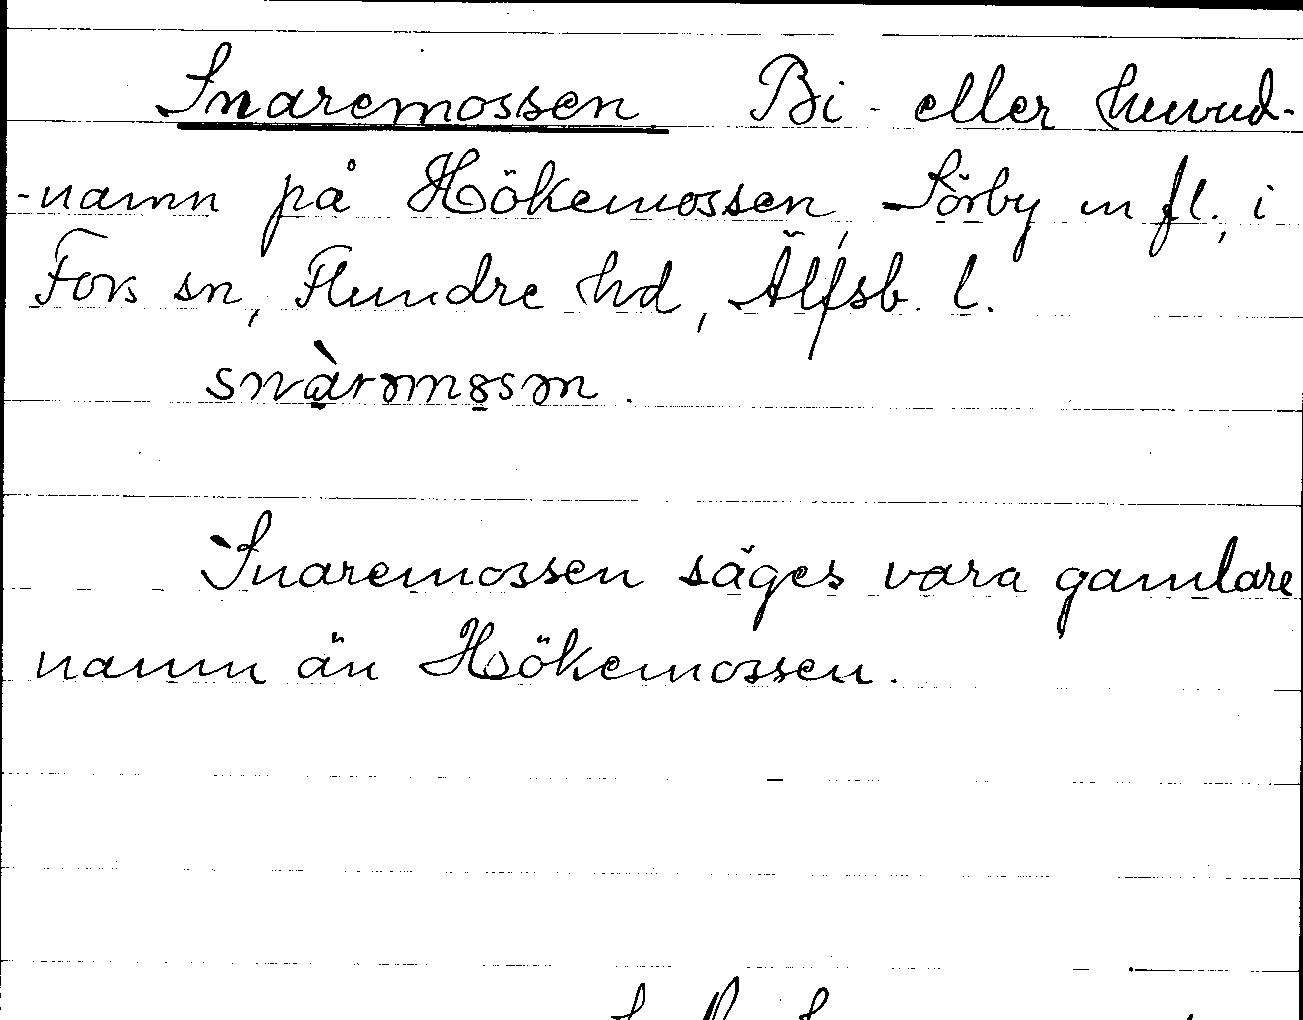 Snaremossen Bi- eller huvud-
-namn på Hökemossen, Sörby m fl., i
Fors sn, Flundre hd, Älfsb. l.
snàrəmɷsən.
Snaremossen säges vara gamlare
namn än Hökemossen.